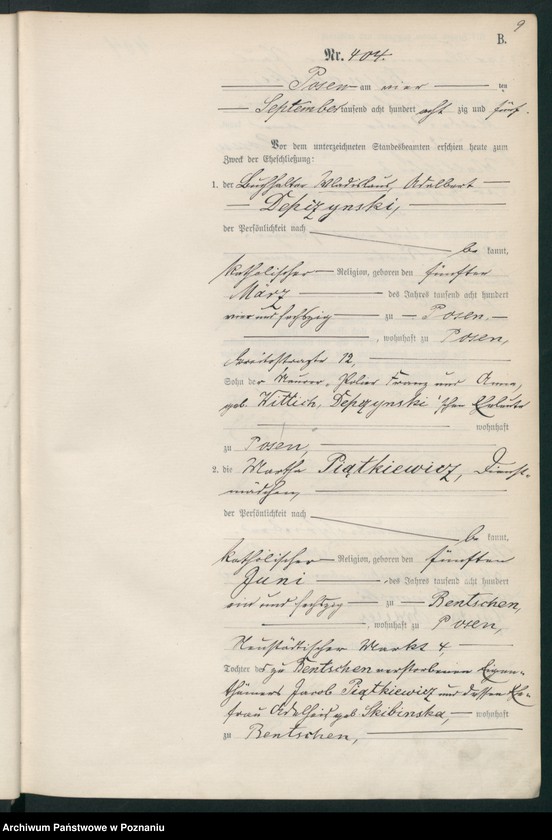 9
B.
Nr. 404.
Posen am vier ten
September tausend acht hundert acht zig und fünf.
Vor dem unterzeichneten Standesbeamten erschien heute zum
Zweck der Eheschließung:
1. der Buchhalter Wladislaus, Adalbert
Depizynski,
der Persönlichkeit nach
be kannt,
katholischer Religion, geboren den fünften
März des Jahres tausend acht hundert
vier und sechszig zu Posen,
, wohnhaft zu Posen,
Breitestraße 12,
Sohn der Maurer-Polier Franz und Anna,
geb. Wittich, Depczynski'schen Eheleute
wohnhaft
zu Posen,
2. die Martha Piątkiewicz, Dienst-
mädchen,
der Persönlichkeit nach
be kannt,
katholischer Religion, geboren den fünften
Juni des Jahres tausend acht hundert
ein und sechszig zu Bentschen,
, wohnhaft zu Posen,
Neustädtischer Markt 4,
Tochter des zu Bentschen verstorbenen Eigen-
thümers Jacob Piątkiewicz und dessen Ehe-
frau Adelheid geb. Skibinska, wohnhaft
zu Bentschen,
Archiwum Państwowe w Poznaniu